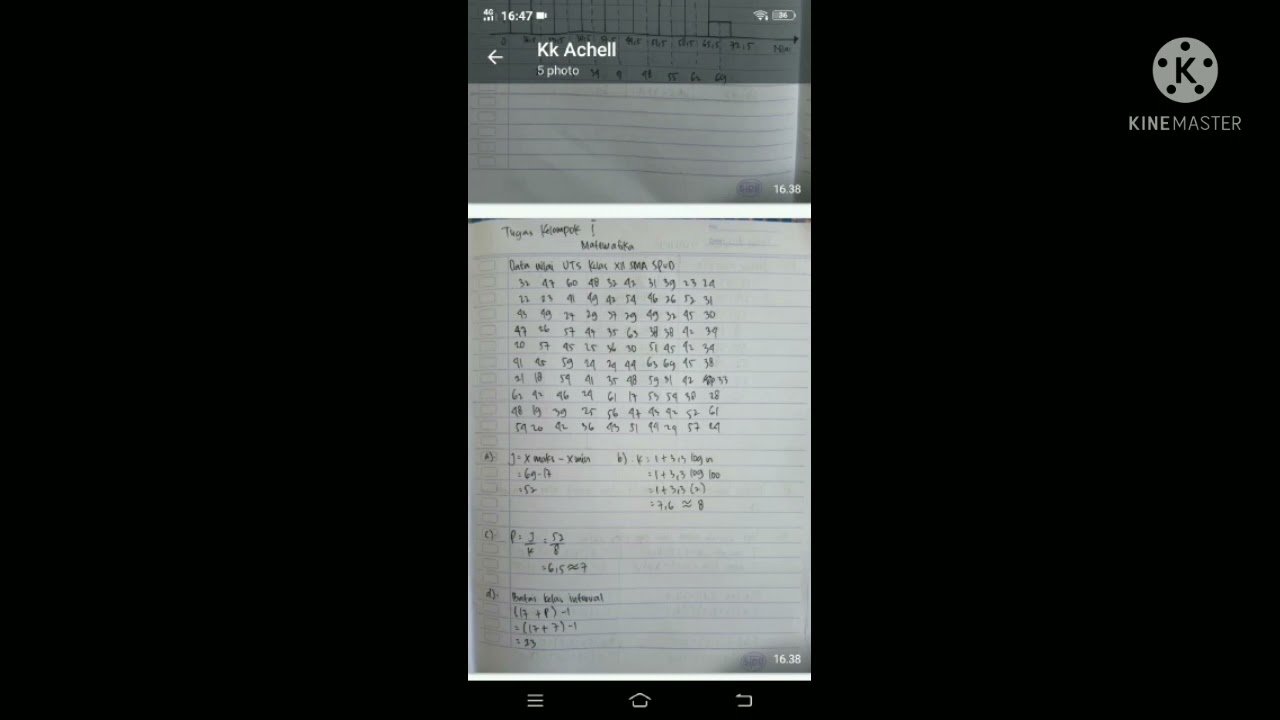 4G 16:47 36
Kk Achell
5 photo
KINEMASTER
K
16.38
Tugas Kelompok I
Matematika
Data nilai UTS Kelas XII SMA
32 47 60 48 32 42 31 39 23 24
22 23 41 49 42 54 46 26 52 31
43 49 27 29 37 29 49 32 45 30
47 26 57 44 35 63 38 38 42 34
20 57 45 25 36 30 51 45 42 34
41 45 59 24 24 44 63 69 45 38
21 18 54 41 35 48 59 31 42 33
62 42 46 24 61 17 53 54 38 28
48 19 39 25 56 47 43 42 52 61
54 20 42 36 43 31 44 29 57 24
a). J = X maks - X min
= 69-17
= 52
b) K = 1 + 3,3 log n
= 1 + 3,3 log 100
= 1 + 3,3 (2)
= 7,6 ≈ 8
c). P = J/K = 52/8
= 6,5 ≈ 7
d). Batas kelas interval
(17 + P) -1
= (17 + 7) -1
= 23
SIDU 16.38